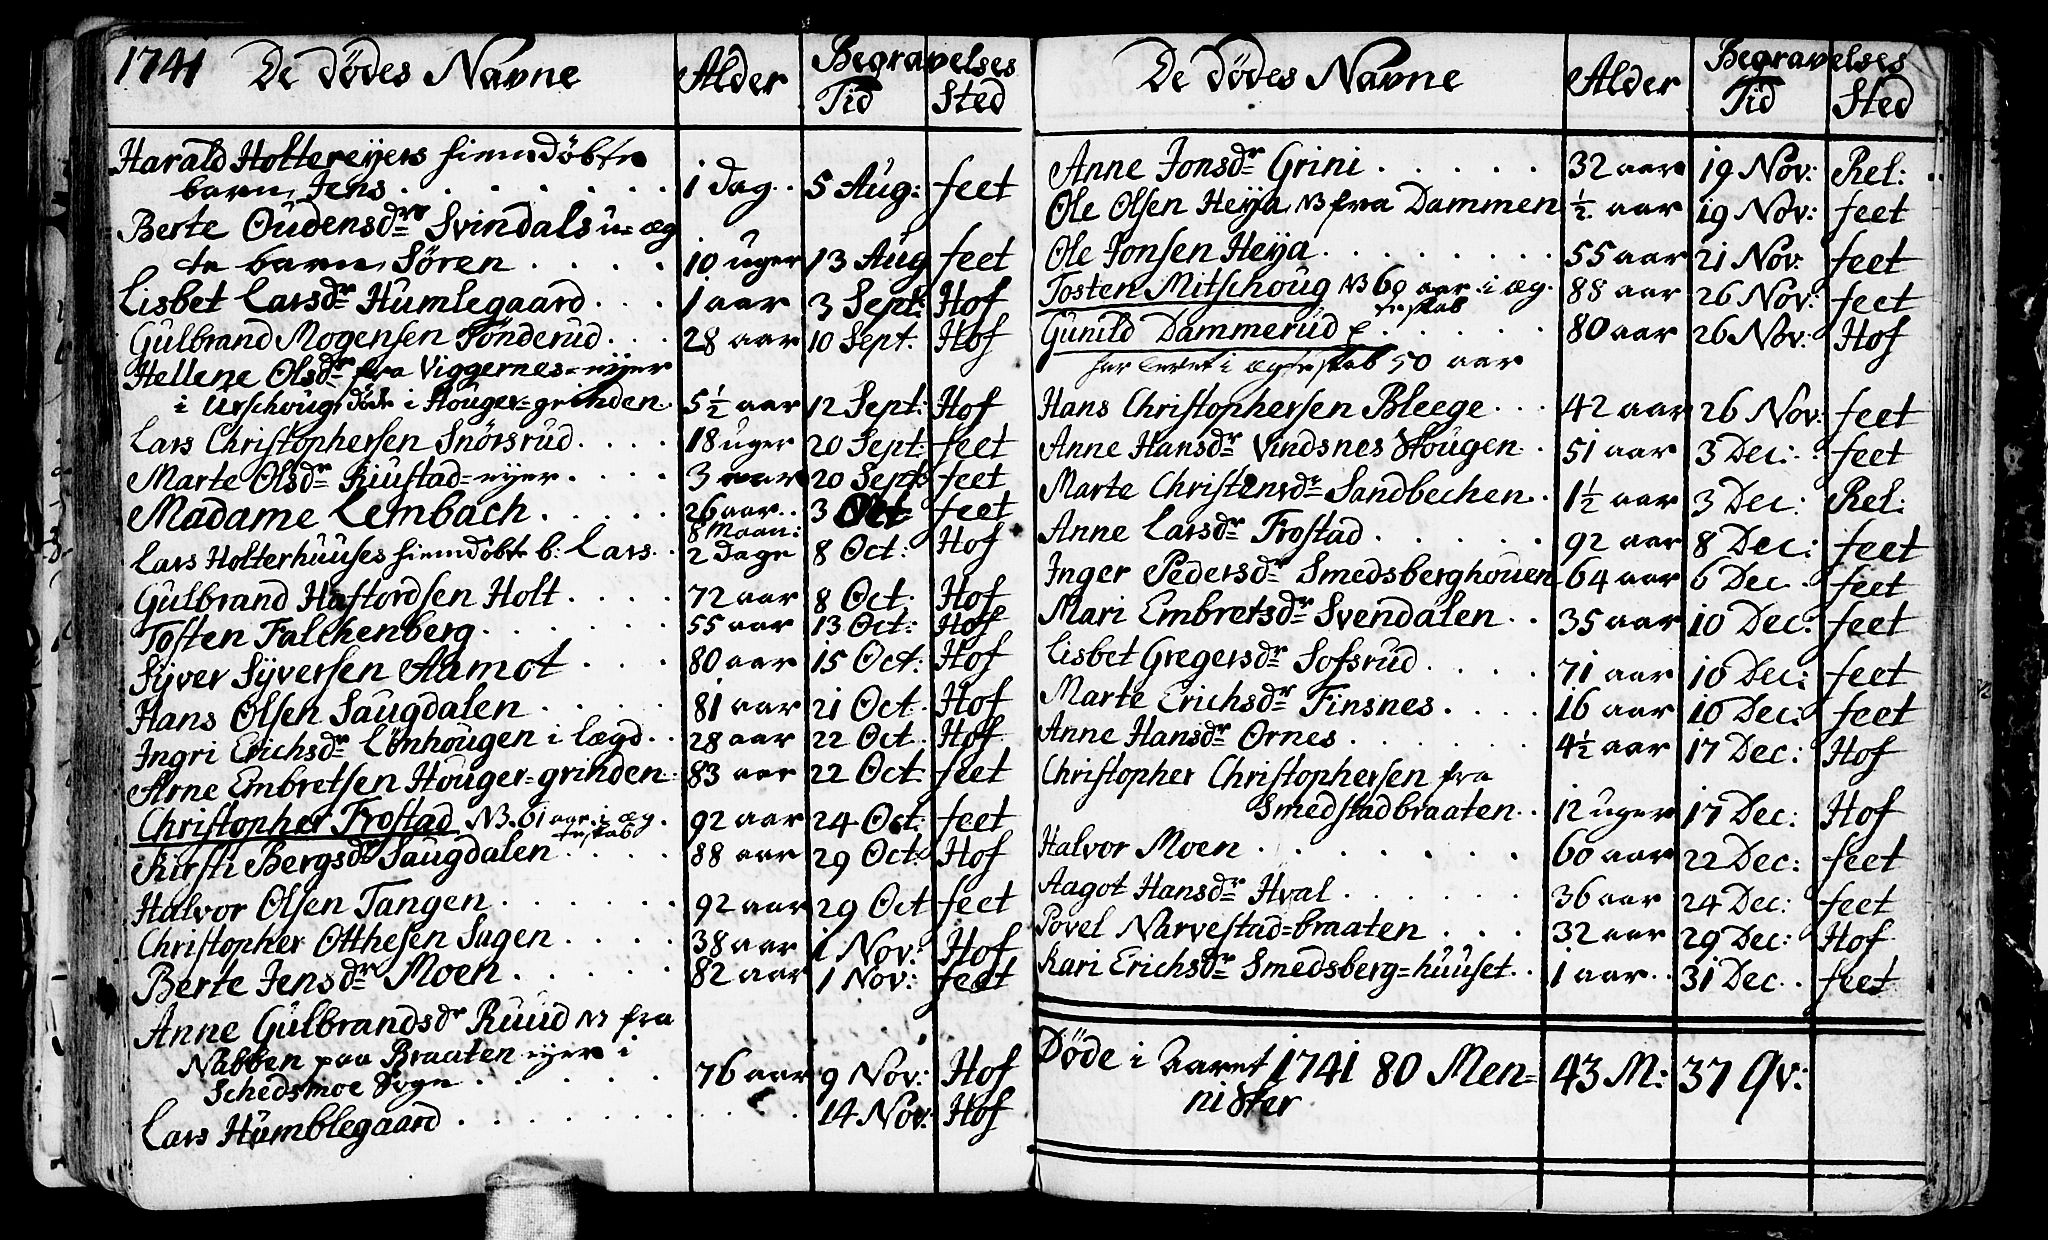 1741 De dödes Navne Alder Begravelses
Tid Sted
Harald Holtereyers hiemdöbte
barn Jens . . . . . . . 1 dag . . 5 Aug: feet
Berte Oudensdr Svindals u=æg
te barn Sören . . . . 10 uger 13 Aug feet
Lisbet Larsdr Humlegaard . . . 1 aar 3 Sept: Hof
Gulbrand Mogensen Tönderud . . . 28 aar 10 Sept. Hof
Hellene Olsdr fra Viggernes=eyer
i Urschoug döde i Houger=grinden. 5½ aar 12 Sept: Hof
Lars Christophersen Snörsrud . . . . 18 uger 20 Sept: feet
Marte Olsdr Riustad=eyer . . . . 3 aar 20 Sept feet
Madame Lembach . . . . . 26 aar . . 3 Oct: feet
8 Maan:
Lars Holterhuuses hiemdöbte b: Lars . . 2 Dage 8 Oct: Hof
Gulbrand Haftordsen Holt . . . . 72 aar 8 Oct. Hof
Tosten Falchenberg . . . . . . 55 aar 13 Oct: Hof
Syver Syversen Aamot . . . 80 aar 15 Oct: Hof
Hans Olsen Saugdalen . . . . . 81 aar 21 Oct. Hof
Ingri Erichsdr Lönhougen i lægd . . 28 aar 22 Oct. Hof
Arne Embretsen Houger=grinden . 83 aar 22 Oct. feet
Christopher Frostad NB. 61 aar i æg. 92 aar 24 Oct: feet
teskab
Kirsti Bergsdr Saugdalen . . . . 88 aar 29 Oct: Hof
Halvor Olsen Tangen . . . . . . 92 aar 29 Oct feet
Christopher Otthesen Sagen . . . . 38 aar 1 Nov: Hof
Berte Jensdr Moen . . . . . 82 aar 1 Nov: feet
Anne Gulbrandsdr Ruud NB fra
Nabben paa Braaten eyer i
Schedsmoe Sogn . . . . . 76 aar 9 Nov: Hof
Lars Humblegaard . . . . . . . . . 14 Nov: Hof
De dödes Navne Alder Begravelses
Tid Sted
Anne Jonsdr Grini . . . . . 32 aar 19 Nov: Rel: . .
Ole Olsen Heya NB fra Dammen ½ aar 19 Nov: feet
Ole Jonsen Heya . . . . . . . . 55 aar 21 Nov: feet
Tosten Mitschoug NB 60 aar i æg. 88 aar 26 Nov: feet
teskab
Gunild Dammerud . . . . . 80 aar 26 Nov: Hof
har levet i ægteskab 50 aar
Hans Christophersen Bleege . . . 42 aar 26 Nov: feet
Anne Hansdr Vindsnes Hougen . . 51 aar 3 Dec: . feet
Marte Christensdr Sandbechen . 1½ aar 3 Dec: Rel:
Anne Larsdr Frostad . . . . . 92 aar 8 Dec: feet
Inger Pedersdr Smedsberghouen 64 aar 6 Dec . feet
Mari Embretsdr Svendalen . . 35 aar 10 Dec: feet
Lisbet Gregersdr Sofsrud . . . . 71 aar 10 Dec: feet
Marte Erichsdr Finsnes . . . . 16 aar 10 Dec: feet
Anne Hansdr Ornes . . . . . . 4½ aar 17 Dec: Hof
Christopher Christophersen fra
Smedstadbraaten . . 12 uger 17 Dec: Hof
Halvor Moen . . . . . . . 60 aar 22 Dec: feet
Aagot Hansdr Hval . . . . . . 36 aar 24 Dec: feet
Povel Narvestad=braaten . . . 32 aar 29 Dec: Hof
Kari Erichsdr Smedsberg=huuset . . 1 aar . . 31 Dec . . feet
Döde i Aaret 1741 80 Men= 43 M: 37 Qv:
nisker